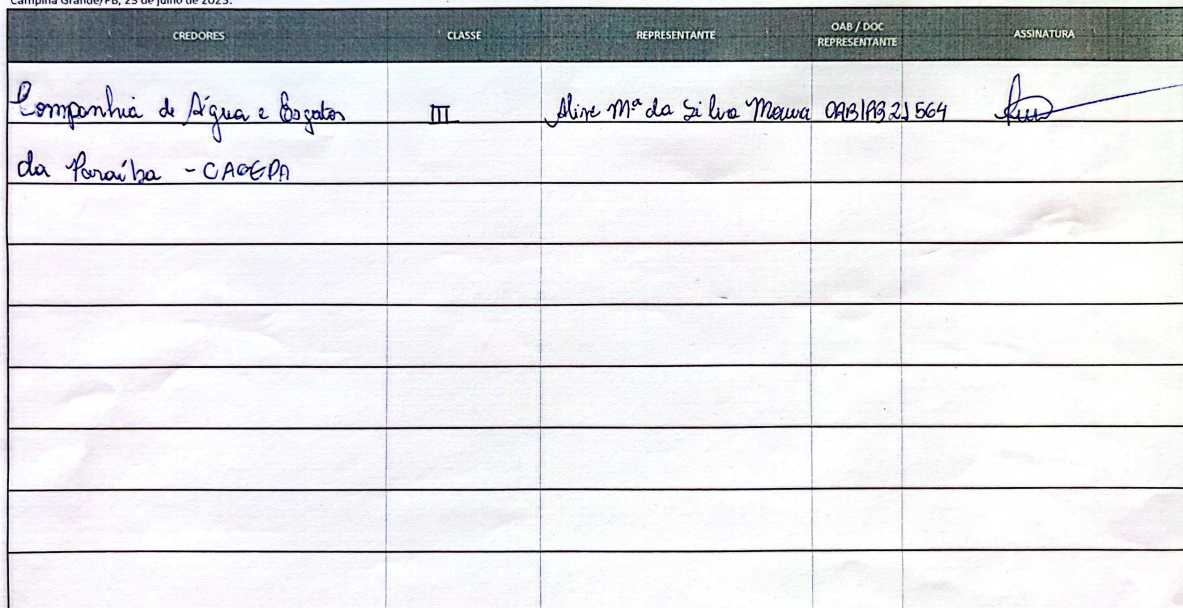 Campina Grande/PB, 25 de julho de 2023.
CREDORES CLASSE REPRESENTANTE OAB / DOC REPRESENTANTE ASSINATURA
Companhia de Água e Esgotos III Aline Mª da Silva Moura OAB/PB 21564
da Paraíba - CAGEPA